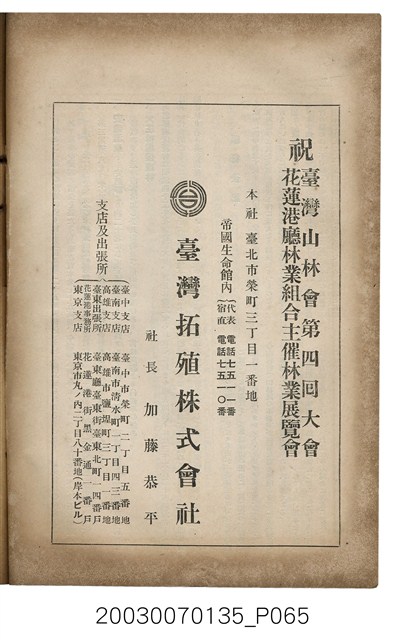 祝
臺灣山林會第四回大會
花蓮港廳林業組合主催林業展覽會
本社 臺北市榮町三丁目一番地
帝國生命館內
代表 電話七五一一番
宿直 電話七五一〇番
臺灣拓殖株式會社
社長 加藤恭平
支店及出張所
臺中支店 臺中市榮町二丁目五番地
臺南支店 臺南市清水町一丁目四三番地
高雄支店 高雄市鹽埕町三丁目一番地
臺東出張所 臺東廳臺東街臺東北町一四番戶
花蓮港事務所 花蓮港街黑金通一番戶
東京支店 東京市丸ノ內二丁目八十番地(岸本ビル)
20030070135_P065